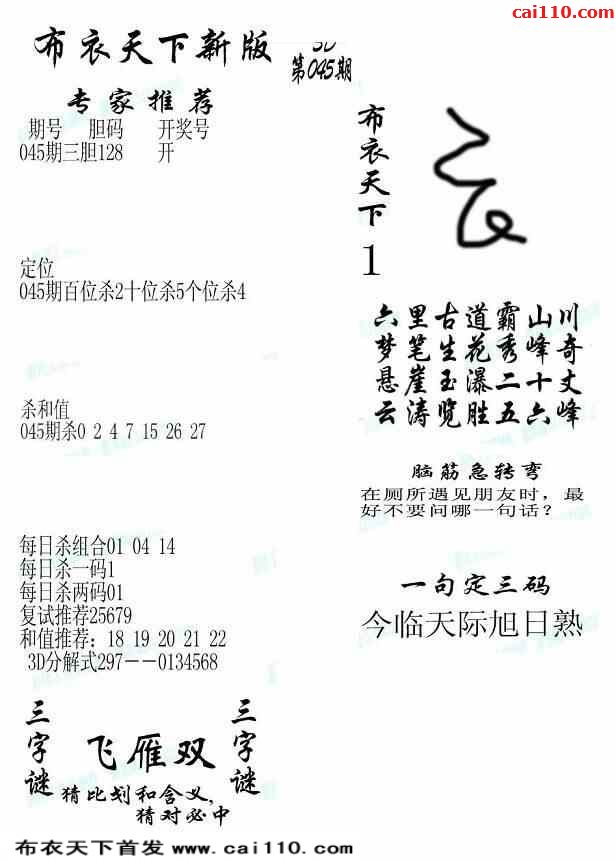 cai110.com
布衣天下新版
3D
第045期
专家推荐
期号 胆码 开奖号
045期三胆128 开
定位
045期百位杀2十位杀5个位杀4
杀和值
045期杀0 2 4 7 15 26 27
每日杀组合01 04 14
每日杀一码1
每日杀两码01
复试推荐25679
和值推荐：18 19 20 21 22
3D分解式297－－0134568
三字谜
飞雁双
三字谜
猜比划和含义,
猜对必中
布衣天下
1
六里古道霸山川
梦笔生花秀峰奇
悬崖玉瀑二十丈
云涛览胜五六峰
脑筋急转弯
在厕所遇见朋友时，最
好不要问哪一句话？
一句定三码
今临天际旭日熟
布衣天下首发 www.cai110.com